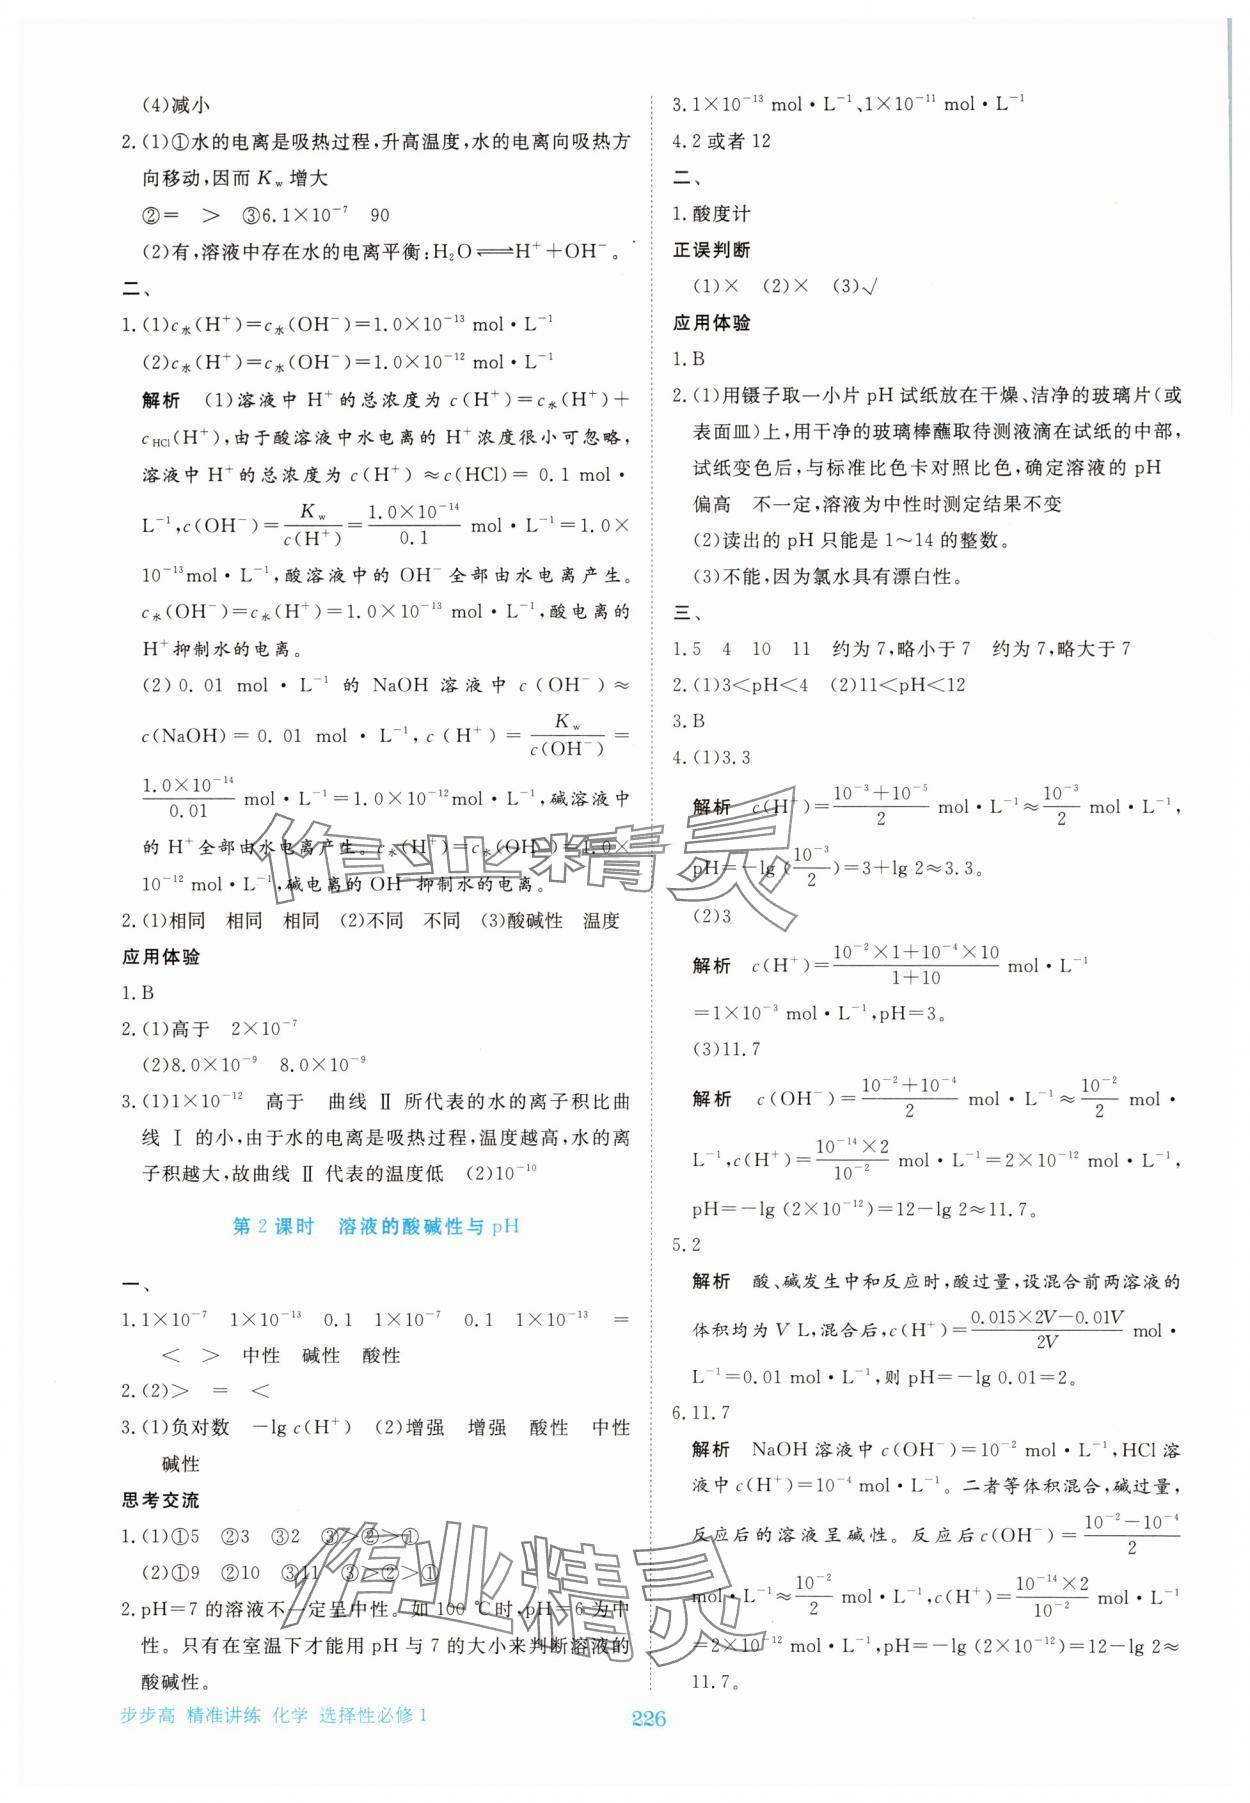 (4)减小
2.(1)①水的电离是吸热过程,升高温度,水的电离向吸热方
向移动,因而 Kw 增大
②= > ③6.1×10⁻⁷ 90
(2)有,溶液中存在水的电离平衡:H₂O⇌H⁺+OH⁻。
二、
1.(1)c水(H⁺)=c水(OH⁻)=1.0×10⁻¹³ mol·L⁻¹
(2)c水(H⁺)=c水(OH⁻)=1.0×10⁻¹² mol·L⁻¹
解析 (1)溶液中 H⁺的总浓度为 c(H⁺)=c水(H⁺)+
cHCl(H⁺),由于酸溶液中水电离的 H⁺浓度很小可忽略,
溶液中 H⁺的总浓度为 c(H⁺)≈c(HCl)=0.1 mol·
L⁻¹,c(OH⁻)=Kw/c(H⁺)=1.0×10⁻¹⁴/0.1 mol·L⁻¹=1.0×
10⁻¹³mol·L⁻¹,酸溶液中的 OH⁻全部由水电离产生。
c水(OH⁻)=c水(H⁺)=1.0×10⁻¹³ mol·L⁻¹,酸电离的
H⁺抑制水的电离。
(2)0.01 mol·L⁻¹ 的 NaOH 溶液中 c(OH⁻)≈
c(NaOH)=0.01 mol·L⁻¹,c(H⁺)=Kw/c(OH⁻)=
1.0×10⁻¹⁴/0.01 mol·L⁻¹=1.0×10⁻¹²mol·L⁻¹,碱溶液中
的 H⁺全部由水电离产生。c水(H⁺)=c水(OH⁻)=1.0×
10⁻¹² mol·L⁻¹,碱电离的 OH⁻抑制水的电离。
2.(1)相同 相同 相同 (2)不同 不同 (3)酸碱性 温度
应用体验
1.B
2.(1)高于 2×10⁻⁷
(2)8.0×10⁻⁹ 8.0×10⁻⁹
3.(1)1×10⁻¹² 高于 曲线 Ⅱ 所代表的水的离子积比曲
线 Ⅰ 的小,由于水的电离是吸热过程,温度越高,水的离
子积越大,故曲线 Ⅱ 代表的温度低 (2)10⁻¹⁰
第 2 课时 溶液的酸碱性与 pH
一、
1.1×10⁻⁷ 1×10⁻¹³ 0.1 1×10⁻⁷ 0.1 1×10⁻¹³ =
< > 中性 碱性 酸性
2.(2)> = <
3.(1)负对数 -lg c(H⁺) (2)增强 增强 酸性 中性
碱性
思考交流
1.(1)①5 ②3 ③2 ③>②>①
(2)①9 ②10 ③11 ③>②>①
2.pH=7 的溶液不一定呈中性。如 100 ℃时,pH=6 为中
性。只有在室温下才能用 pH 与 7 的大小来判断溶液的
酸碱性。
3.1×10⁻¹³ mol·L⁻¹、1×10⁻¹¹ mol·L⁻¹
4.2 或者 12
二、
1.酸度计
正误判断
(1)× (2)× (3)√
应用体验
1.B
2.(1)用镊子取一小片 pH 试纸放在干燥、洁净的玻璃片(或
表面皿)上,用干净的玻璃棒蘸取待测液滴在试纸的中部,
试纸变色后,与标准比色卡对照比色,确定溶液的 pH
偏高 不一定,溶液为中性时测定结果不变
(2)读出的 pH 只能是 1～14 的整数。
(3)不能,因为氯水具有漂白性。
三、
1.5 4 10 11 约为 7,略小于 7 约为 7,略大于 7
2.(1)3<pH<4 (2)11<pH<12
3.B
4.(1)3.3
解析 c(H⁺)=(10⁻³+10⁻⁵)/2 mol·L⁻¹≈10⁻³/2 mol·L⁻¹,
pH=-lg(10⁻³/2)=3+lg 2≈3.3。
(2)3
解析 c(H⁺)=(10⁻²×1+10⁻⁴×10)/(1+10) mol·L⁻¹
=1×10⁻³ mol·L⁻¹,pH=3。
(3)11.7
解析 c(OH⁻)=(10⁻²+10⁻⁴)/2 mol·L⁻¹≈10⁻²/2 mol·
L⁻¹,c(H⁺)=10⁻¹⁴×2/10⁻² mol·L⁻¹=2×10⁻¹² mol·L⁻¹,
pH=-lg (2×10⁻¹²)=12-lg 2≈11.7。
5.2
解析 酸、碱发生中和反应时,酸过量,设混合前两溶液的
体积均为 V L,混合后,c(H⁺)=(0.015×2V-0.01V)/2V mol·
L⁻¹=0.01 mol·L⁻¹,则 pH=-lg 0.01=2。
6.11.7
解析 NaOH 溶液中 c(OH⁻)=10⁻² mol·L⁻¹,HCl 溶
液中 c(H⁺)=10⁻⁴ mol·L⁻¹。二者等体积混合,碱过量,
反应后的溶液呈碱性。反应后 c(OH⁻)=(10⁻²-10⁻⁴)/2
mol·L⁻¹≈10⁻²/2 mol·L⁻¹,c(H⁺)=10⁻¹⁴×2/10⁻² mol·L⁻¹
=2×10⁻¹² mol·L⁻¹,pH=-lg (2×10⁻¹²)=12-lg 2≈
11.7。
作业精灵
作业精灵
步步高 精准讲练 化学 选择性必修 1
226